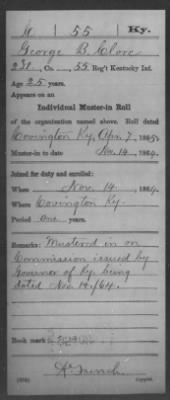 55 Ky.
George B.
2 Lt., Co. , 55 Reg't Kentucky Inf.
Age 25 years.
Appears on an
Individual Muster-in Roll
of the organization named above. Roll dated
Covington Ky, Apr. 7, 1865.
Muster-in to date Nov. 14, 1864.
Joined for duty and enrolled:
When Nov. 14, 1864.
Where Covington Ky.
Period one years.
Remarks: Mustered in on
Commission issued by
Governor of Ky. being
dated Nov 14/64.
Book mark: